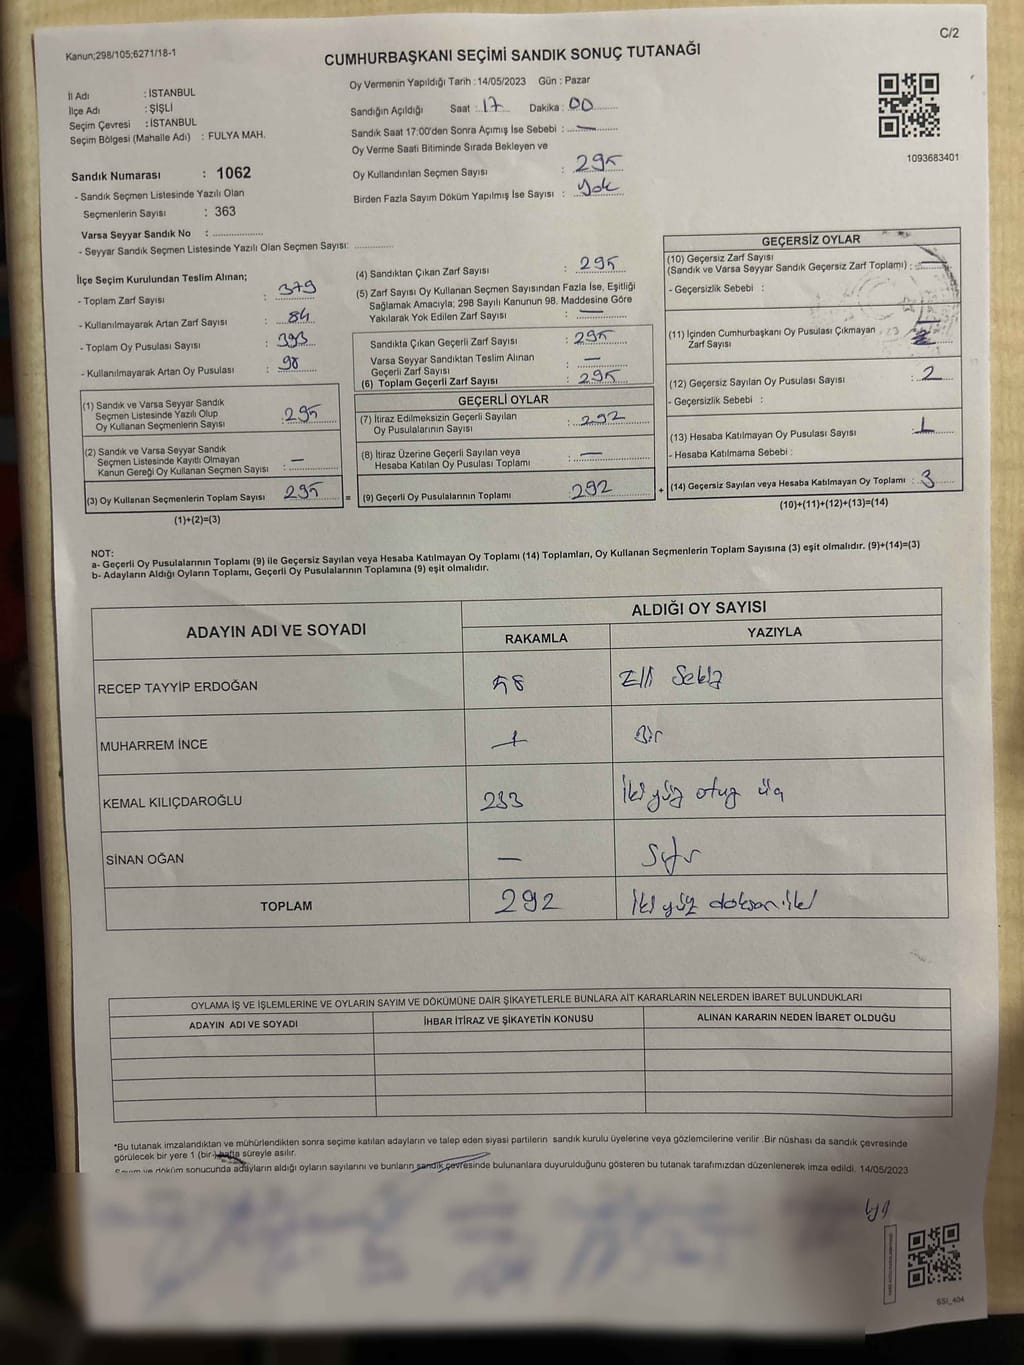 Kanun;298/105;6271/18-1
C/2
CUMHURBAŞKANI SEÇİMİ SANDIK SONUÇ TUTANAĞI
Oy Vermenin Yapıldığı Tarih : 14/05/2023 Gün : Pazar
İl Adı : İSTANBUL
İlçe Adı : ŞİŞLİ
Seçim Çevresi : İSTANBUL
Seçim Bölgesi (Mahalle Adı) : FULYA MAH.
Sandığın Açıldığı Saat : 17 Dakika : 00
Sandık Saat 17:00'den Sonra Açımış İse Sebebi : —
Oy Verme Saati Bitiminde Sırada Bekleyen ve
Oy Kullandırılan Seçmen Sayısı : 295
Birden Fazla Sayım Döküm Yapılmış İse Sayısı : Yok
1093683401
Sandık Numarası : 1062
- Sandık Seçmen Listesinde Yazılı Olan
Seçmenlerin Sayısı : 363
Varsa Seyyar Sandık No : ................
- Seyyar Sandık Seçmen Listesinde Yazılı Olan Seçmen Sayısı: ............
İlçe Seçim Kurulundan Teslim Alınan;
- Toplam Zarf Sayısı : 379
- Kullanılmayarak Artan Zarf Sayısı : 84
- Toplam Oy Pusulası Sayısı : 393
- Kullanılmayarak Artan Oy Pusulası : 98
(1) Sandık ve Varsa Seyyar Sandık
Seçmen Listesinde Yazılı Olup
Oy Kullanan Seçmenlerin Sayısı : 295
(2) Sandık ve Varsa Seyyar Sandık
Seçmen Listesinde Kayıtlı Olmayan
Kanun Gereği Oy Kullanan Seçmen Sayısı : —
(3) Oy Kullanan Seçmenlerin Toplam Sayısı 295 =
(1)+(2)=(3)
(4) Sandıktan Çıkan Zarf Sayısı : 295
(5) Zarf Sayısı Oy Kullanan Seçmen Sayısından Fazla İse, Eşitliği
Sağlamak Amacıyla; 298 Sayılı Kanunun 98. Maddesine Göre
Yakılarak Yok Edilen Zarf Sayısı : —
Sandıkta Çıkan Geçerli Zarf Sayısı : 295
Varsa Seyyar Sandıktan Teslim Alınan
Geçerli Zarf Sayısı : —
(6) Toplam Geçerli Zarf Sayısı : 295
GEÇERLİ OYLAR
(7) İtiraz Edilmeksizin Geçerli Sayılan
Oy Pusulalarının Sayısı : 292
(8) İtiraz Üzerine Geçerli Sayılan veya
Hesaba Katılan Oy Pusulası Toplamı : —
(9) Geçerli Oy Pusulalarının Toplamı : 292 +
GEÇERSİZ OYLAR
(10) Geçersiz Zarf Sayısı
(Sandık ve Varsa Seyyar Sandık Geçersiz Zarf Toplamı) : —
- Geçersizlik Sebebi :
(11) İçinden Cumhurbaşkanı Oy Pusulası Çıkmayan
Zarf Sayısı
(12) Geçersiz Sayılan Oy Pusulası Sayısı : 2
- Geçersizlik Sebebi :
(13) Hesaba Katılmayan Oy Pusulası Sayısı : 1
- Hesaba Katılmama Sebebi :
(14) Geçersiz Sayılan veya Hesaba Katılmayan Oy Toplamı : 3
(10)+(11)+(12)+(13)=(14)
NOT:
a- Geçerli Oy Pusulalarının Toplamı (9) ile Geçersiz Sayılan veya Hesaba Katılmayan Oy Toplamı (14) Toplamları, Oy Kullanan Seçmenlerin Toplam Sayısına (3) eşit olmalıdır. (9)+(14)=(3)
b- Adayların Aldığı Oyların Toplamı, Geçerli Oy Pusulalarının Toplamına (9) eşit olmalıdır.
ADAYIN ADI VE SOYADI ALDIĞI OY SAYISI
RAKAMLA YAZIYLA
RECEP TAYYİP ERDOĞAN 58 Elli Sekiz
MUHARREM İNCE 1 Bir
KEMAL KILIÇDAROĞLU 233 İki yüz otuz üç
SİNAN OĞAN — Sıfır
TOPLAM 292 İki yüz doksan iki
OYLAMA İŞ VE İŞLEMLERİNE VE OYLARIN SAYIM VE DÖKÜMÜNE DAİR ŞİKAYETLERLE BUNLARA AİT KARARLARIN NELERDEN İBARET BULUNDUKLARI
ADAYIN ADI VE SOYADI İHBAR İTİRAZ VE ŞİKAYETİN KONUSU ALINAN KARARIN NEDEN İBARET OLDUĞU
*Bu tutanak imzalandıktan ve mühürlendikten sonra seçime katılan adayların ve talep eden siyasi partilerin sandık kurulu üyelerine veya gözlemcilerine verilir .Bir nüshası da sandık çevresinde
görülecek bir yere 1 (bir-) hafta süreyle asılır.
Sayım ve döküm sonucunda adayların aldığı oyların sayılarını ve bunların sandık çevresinde bulunanlara duyurulduğunu gösteren bu tutanak tarafımızdan düzenlenerek imza edildi. 14/05/2023
SSI_404